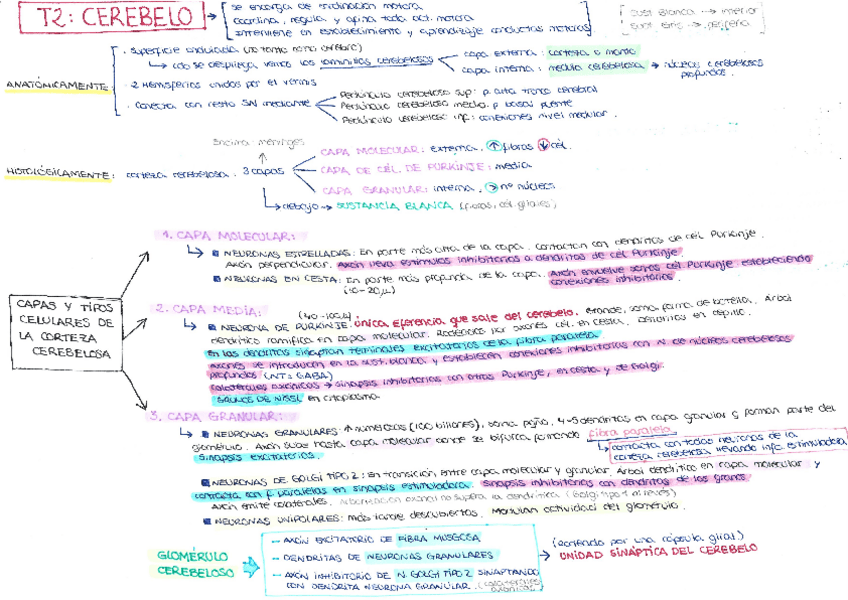 T2: CEREBELO
se encarga de coordinación motora
coordina, regula y afina toda act. motora
interviene en establecimiento y aprendizaje conductas motoras
sust blanca → interior
sust gris → periferia
ANATÓMICAMENTE:
· Superficie ondulada
cdo se despliega vemos los laminillas cerebelosas
capa externa: corteza o manto
capa interna: medula cerebelosa → núcleos cerebelosos profundos.
· 2 Hemisferios unidos por el vermis
· Conecta con resto SN mediante
Pedúnculo cerebeloso sup: p. alta tronco cerebral
Pedúnculo cerebeloso medio: p basal puente
Pedúnculo cerebeloso inf: conexiones nivel medular.
Encima: meninges
HISTOLÓGICAMENTE: corteza cerebelosa. 3 capas
CAPA MOLECULAR: externa. ↑ fibras ↓ cél.
CAPA DE CÉL. DE PURKINJE: media
CAPA GRANULAR: interna, nº núcleos.
debajo → SUSTANCIA BLANCA (fibras, cél. gliales)
CAPAS Y TIPOS
CELULARES DE
LA CORTEZA
CEREBELOSA
1. CAPA MOLECULAR:
NEURONAS ESTRELLADAS: En parte más alta de la capa. contactan con dendritas de cél Purkinje.
Axón perpendicular. Axón lleva estímulos inhibitorios a dendritas de cél Purkinje.
NEURONAS EN CESTA: En parte más profunda de la capa. Axón envuelve somas cél Purkinje estableciendo
(10-20μ) conexiones inhibitorias
2. CAPA MEDIA:
NEURONA DE PURKINJE: única eferencia que sale del cerebelo. Grande, soma forma de botella. Árbol
dendrítico ramifica en capa molecular. Rodeados por axones cél. en cesta.
en las dendritas sinaptan terminales excitatorias de la fibra paralela.
Axones se introducen en la sust. blanca y establecen conexiones inhibitorias con N. de núcleos cerebelosos
profundos. (NT: GABA)
colaterales axónicas → sinapsis inhibitorias con otras Purkinje, en cesta y de Golgi.
GRUMOS DE NISSL en citoplasma.
3. CAPA GRANULAR:
NEURONAS GRANULARES: ↑ numerosas (100 billones), soma pqño. 4-5 dendritas en capa granular y forman parte del
glomérulo. Axón sube hasta capa molecular donde se bifurca formando fibra paralela.
Sinapsis excitatorias.
contacta con todas neuronas de la
corteza cerebelosa llevando info. estimuladora
NEURONAS DE GOLGI TIPO 2: En transición entre capa molecular y granular. Árbol dendrítico en capa molecular y
contacta con f. paralelas en sinapsis estimuladora. Sinapsis inhibitorias con dendritas de los granos.
Axón emite colaterales. Arborización axonal no supera la dendrítica (Golgi tipo 1 al revés)
NEURONAS UNIPOLARES: más tarde descubiertas. Modulan actividad del glomérulo.
GLOMÉRULO
CEREBELOSO
- AXÓN EXCITATORIO DE FIBRA MUSGOSA
- DENDRITAS DE NEURONAS GRANULARES
- AXÓN INHIBITORIO DE N. GOLGI TIPO 2 SINAPTANDO
CON DENDRITA NEURONA GRANULAR. (colaterales axónicas)
(rodeando por una cápsula glial)
UNIDAD SINÁPTICA DEL CEREBELO